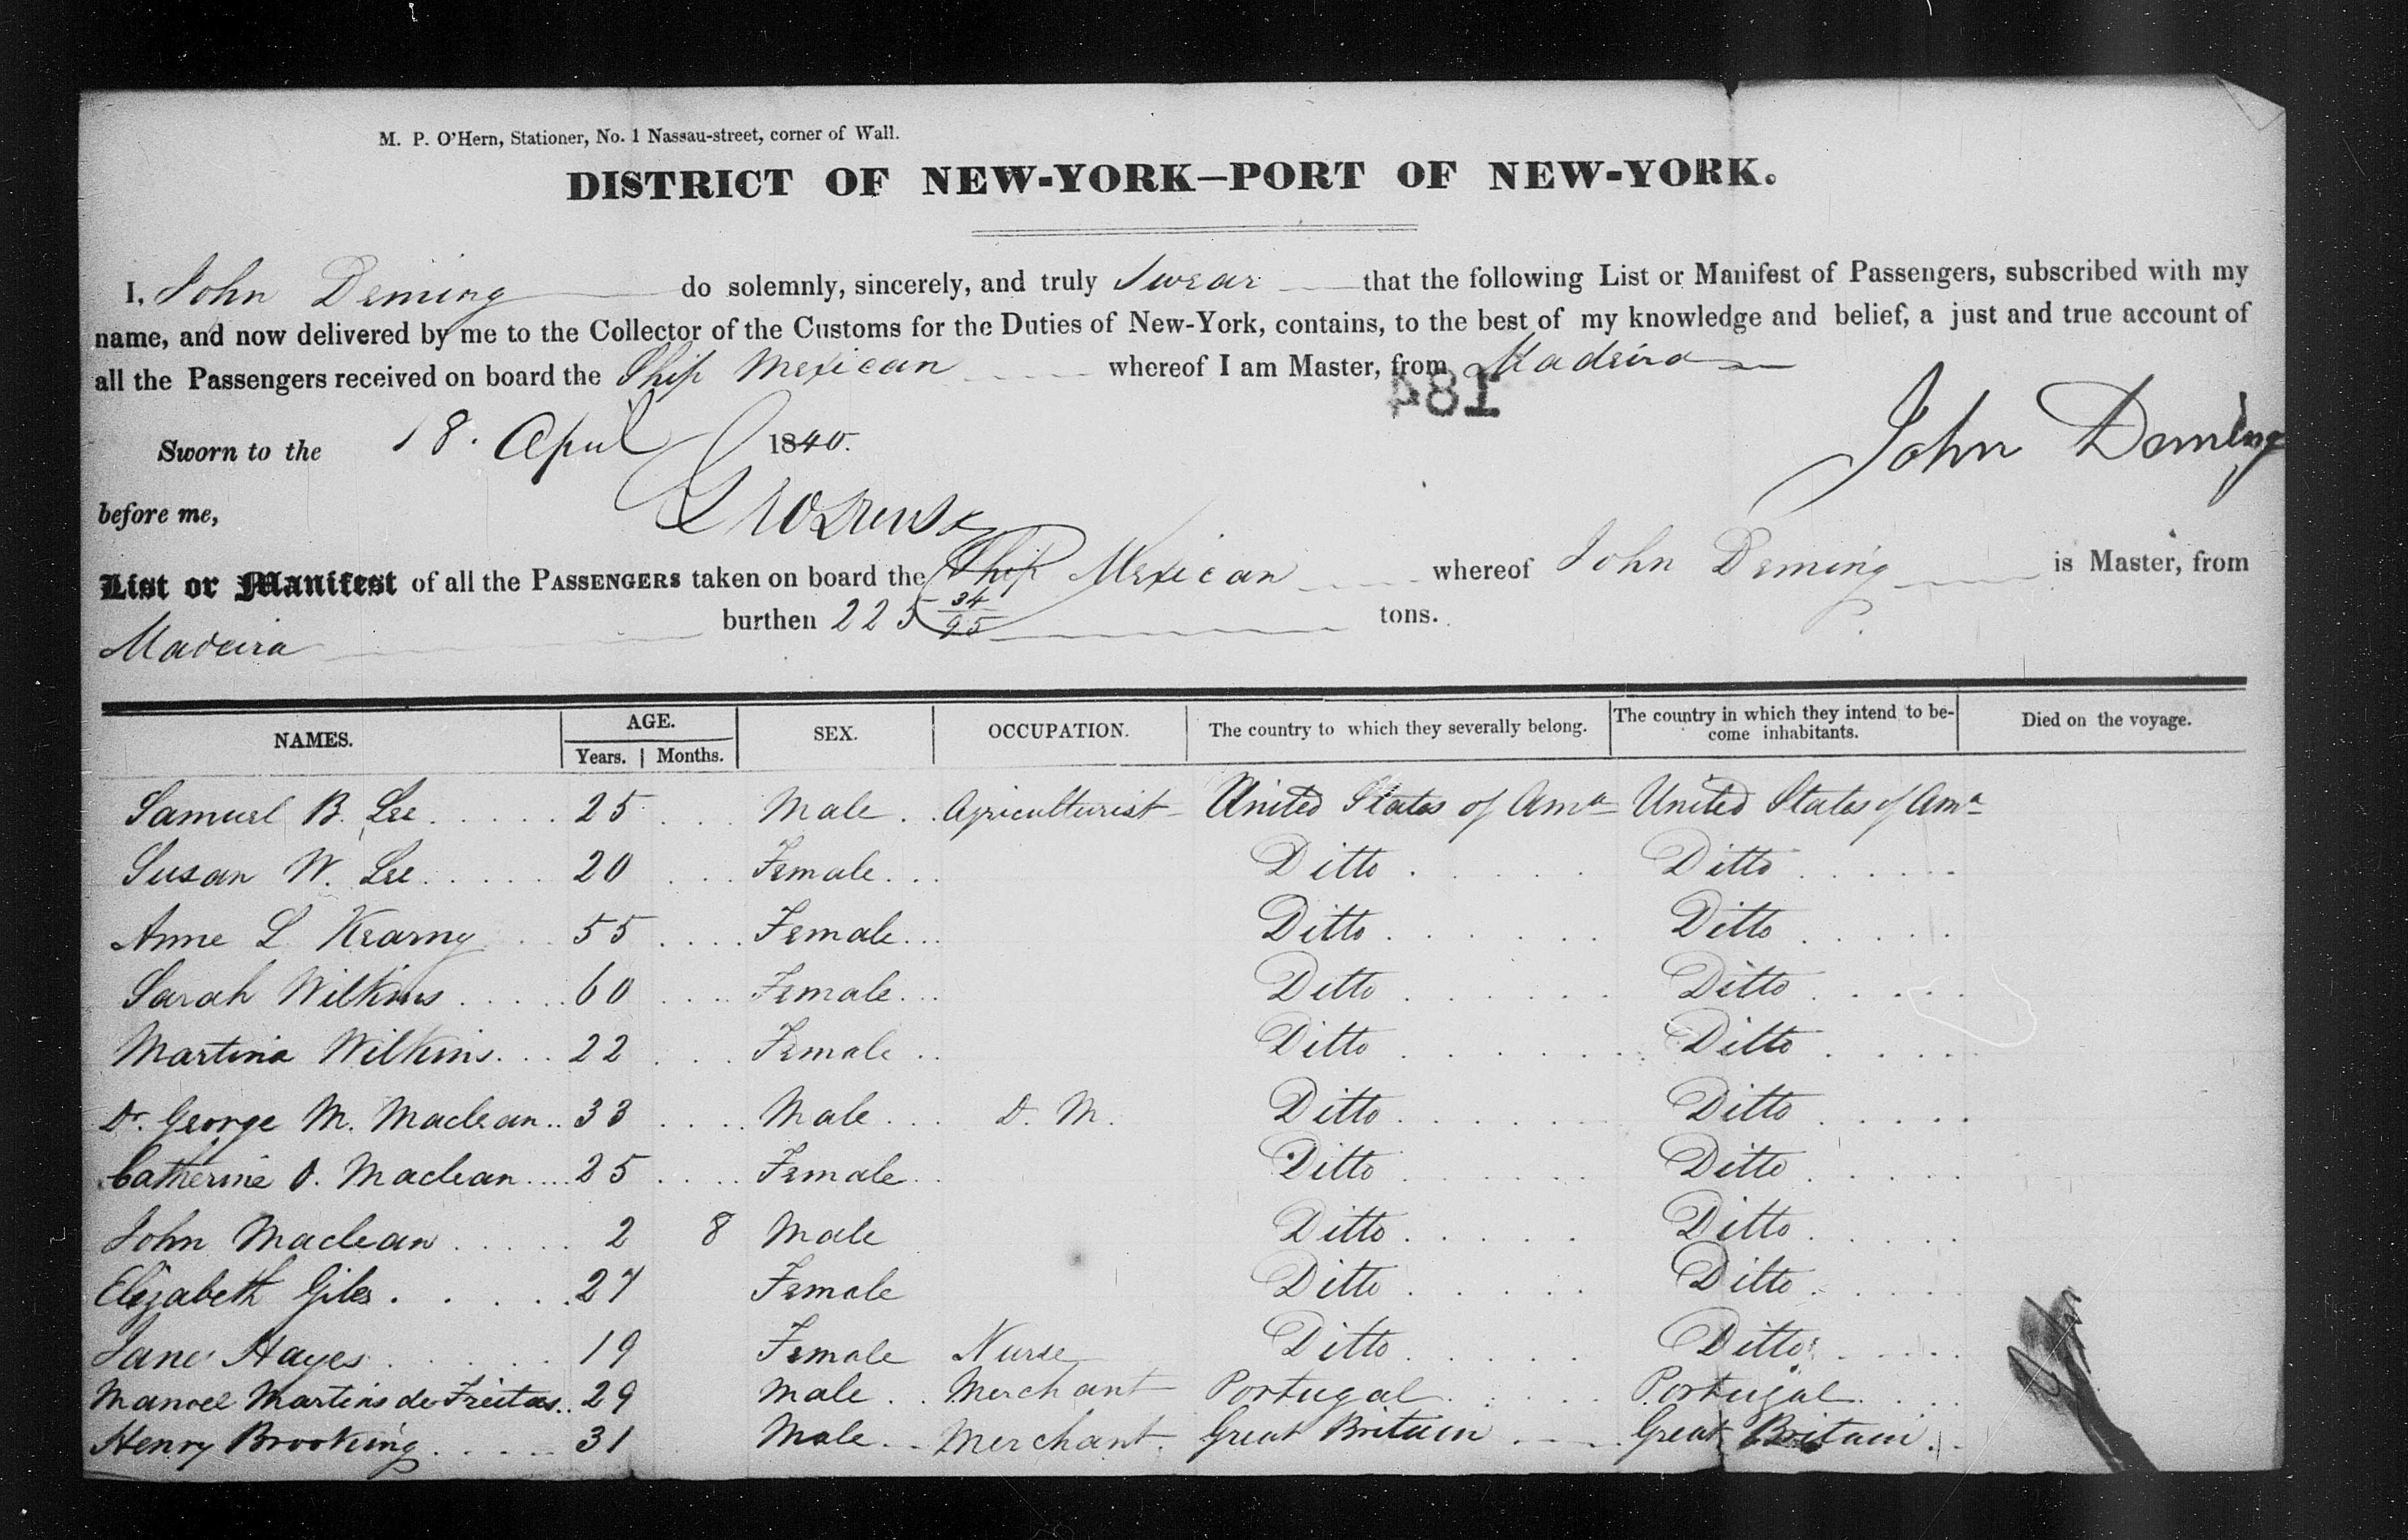 M. P. O'Hern, Stationer, No. 1 Nassau-street, corner of Wall.
DISTRICT OF NEW-YORK—PORT OF NEW-YORK.
I, John Deming do solemnly, sincerely, and truly Swear that the following List or Manifest of Passengers, subscribed with my
name, and now delivered by me to the Collector of the Customs for the Duties of New-York, contains, to the best of my knowledge and belief, a just and true account of
all the Passengers received on board the Ship Mexican whereof I am Master, from Madeira
184
Sworn to the 18. April 1840. John Deming
before me,
List or Manifest of all the PASSENGERS taken on board the Ship Mexican whereof John Deming is Master, from
Madeira burthen 225 34/95 tons.
NAMES. AGE. SEX. OCCUPATION. The country to which they severally belong. The country in which they intend to be-come inhabitants. Died on the voyage.
Years. Months.
Samuel B. Lee 25 Male Agriculturist United States of Ama United States of Ama
Susan W. Lee 20 Female Ditto Ditto
Anne L Kearny 55 Female Ditto Ditto
Sarah Wilkins 60 Female Ditto Ditto
Martina Wilkins 22 Female Ditto Ditto
Dr. George M. Maclean 33 Male D. M. Ditto Ditto
Catherine O. Maclean 25 Female Ditto Ditto
John Maclean 2 8 Male Ditto Ditto
Elizabeth Giles 27 Female Ditto Ditto
Jane Hayes 19 Female Nurse Ditto Ditto
Manoel Martins de Freitas 29 Male Merchant Portugal Portugal
Henry Brooking 31 Male Merchant Great Britain Great Britain